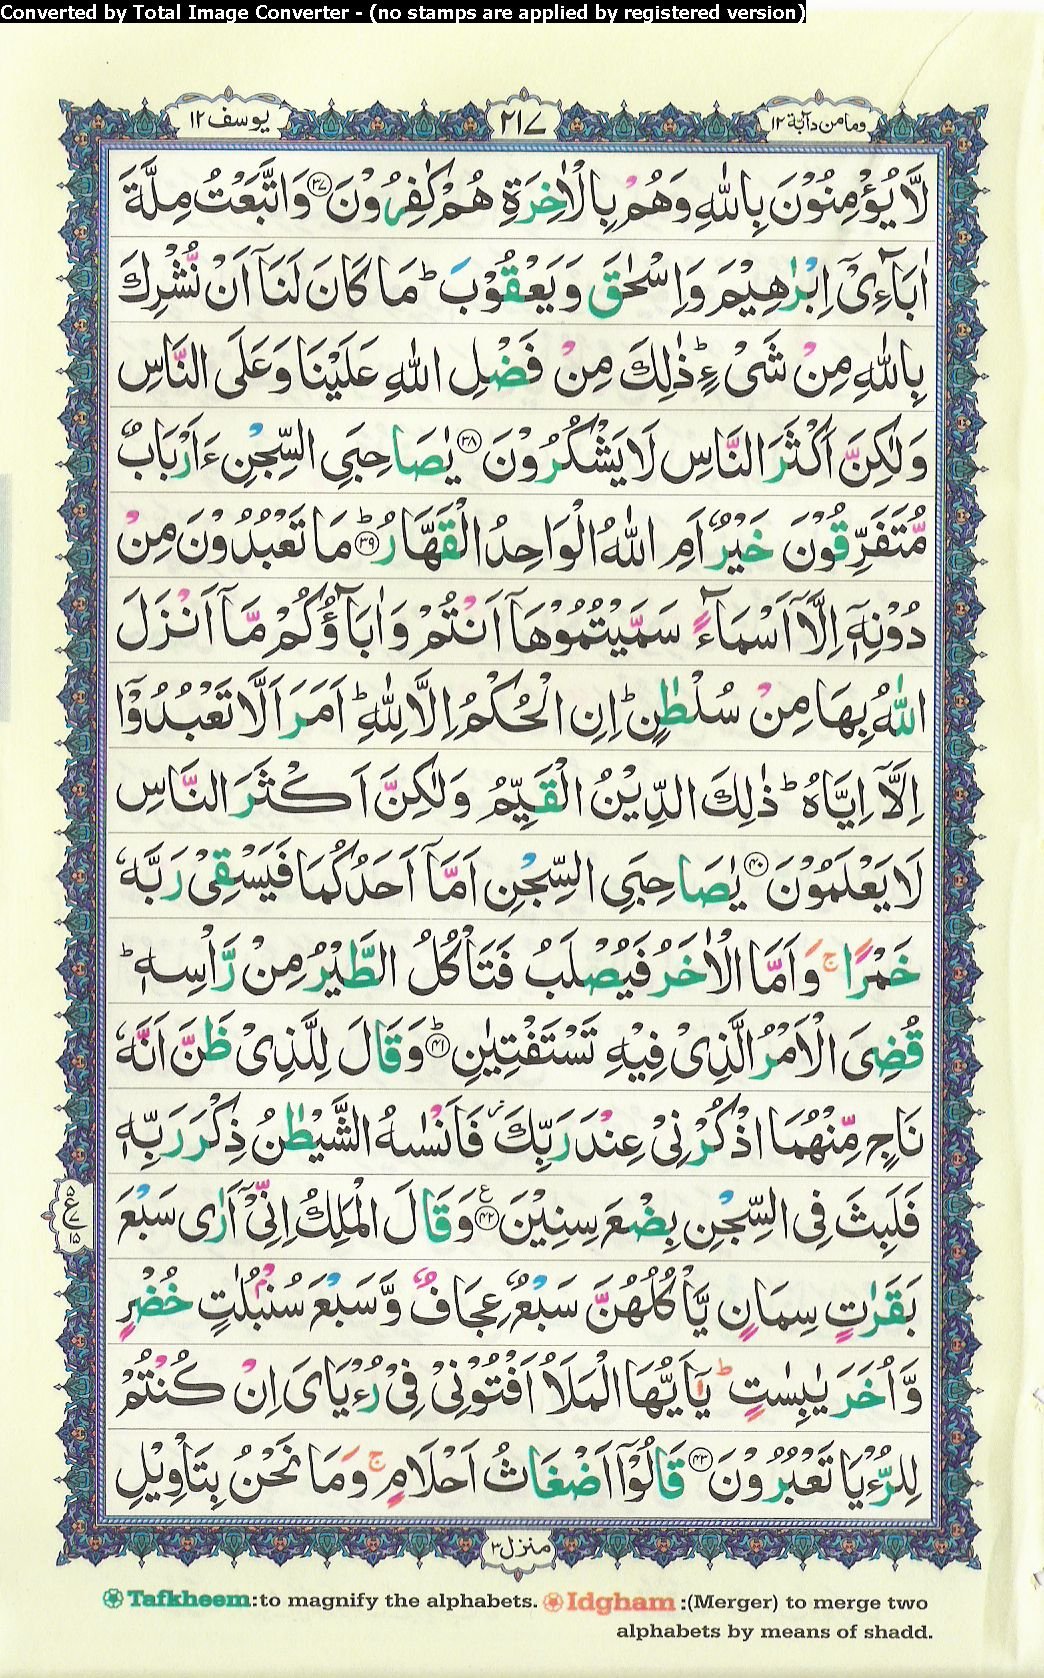 Converted by Total Image Converter - (no stamps are applied by registered version)
ومامن دآبة ١٢
٢١٧
يوسف ١٢
لَّا يُؤْمِنُوْنَ بِاللّٰهِ وَهُمْ بِالْاٰخِرَةِ هُمْ كٰفِرُوْنَ ۝٣٧ وَاتَّبَعْتُ مِلَّةَ
اٰبَآءِىْٓ اِبْرٰهِيْمَ وَاِسْحٰقَ وَيَعْقُوْبَ ؕ مَا كَانَ لَنَآ اَنْ نُّشْرِكَ
بِاللّٰهِ مِنْ شَىْءٍ ؕ ذٰلِكَ مِنْ فَضْلِ اللّٰهِ عَلَيْنَا وَعَلَى النَّاسِ
وَلٰكِنَّ اَكْثَرَ النَّاسِ لَا يَشْكُرُوْنَ ۝٣٨ يٰصَاحِبَىِ السِّجْنِ ءَاَرْبَابٌ
مُّتَفَرِّقُوْنَ خَيْرٌ اَمِ اللّٰهُ الْوَاحِدُ الْقَهَّارُ ؕ۝٣٩ مَا تَعْبُدُوْنَ مِنْ
دُوْنِهٖٓ اِلَّآ اَسْمَآءً سَمَّيْتُمُوْهَآ اَنْتُمْ وَاٰبَآؤُكُمْ مَّآ اَنْزَلَ
اللّٰهُ بِهَا مِنْ سُلْطٰنٍ ؕ اِنِ الْحُكْمُ اِلَّا لِلّٰهِ ؕ اَمَرَ اَلَّا تَعْبُدُوْٓا
اِلَّآ اِيَّاهُ ؕ ذٰلِكَ الدِّيْنُ الْقَيِّمُ وَلٰكِنَّ اَكْثَرَ النَّاسِ
لَا يَعْلَمُوْنَ ۝٤٠ يٰصَاحِبَىِ السِّجْنِ اَمَّآ اَحَدُكُمَا فَيَسْقِىْ رَبَّهٗ
خَمْرًا ۚ وَاَمَّا الْاٰخَرُ فَيُصْلَبُ فَتَاْكُلُ الطَّيْرُ مِنْ رَّاْسِهٖ ؕ
قُضِىَ الْاَمْرُ الَّذِىْ فِيْهِ تَسْتَفْتِيٰنِ ؕ۝٤١ وَقَالَ لِلَّذِىْ ظَنَّ اَنَّهٗ
نَاجٍ مِّنْهُمَا اذْكُرْنِىْ عِنْدَ رَبِّكَ ز فَاَنْسٰىهُ الشَّيْطٰنُ ذِكْرَ رَبِّهٖ
فَلَبِثَ فِى السِّجْنِ بِضْعَ سِنِيْنَ ۝٤٢ ع وَقَالَ الْمَلِكُ اِنِّىْٓ اَرٰى سَبْعَ
بَقَرٰتٍ سِمَانٍ يَّاْكُلُهُنَّ سَبْعٌ عِجَافٌ وَّسَبْعَ سُنْۢبُلٰتٍ خُضْرٍ
وَّاُخَرَ يٰبِسٰتٍ ؕ يٰٓاَيُّهَا الْمَلَاُ اَفْتُوْنِىْ فِىْ رُءْيَاىَ اِنْ كُنْتُمْ
لِلرُّءْيَا تَعْبُرُوْنَ ۝٤٣ قَالُوْٓا اَضْغَاثُ اَحْلَامٍ ۚ وَمَا نَحْنُ بِتَاْوِيْلِ
٥ ع ٧ ١٥
منزل ٣
Tafkheem:to magnify the alphabets. Idgham :(Merger) to merge two
alphabets by means of shadd.